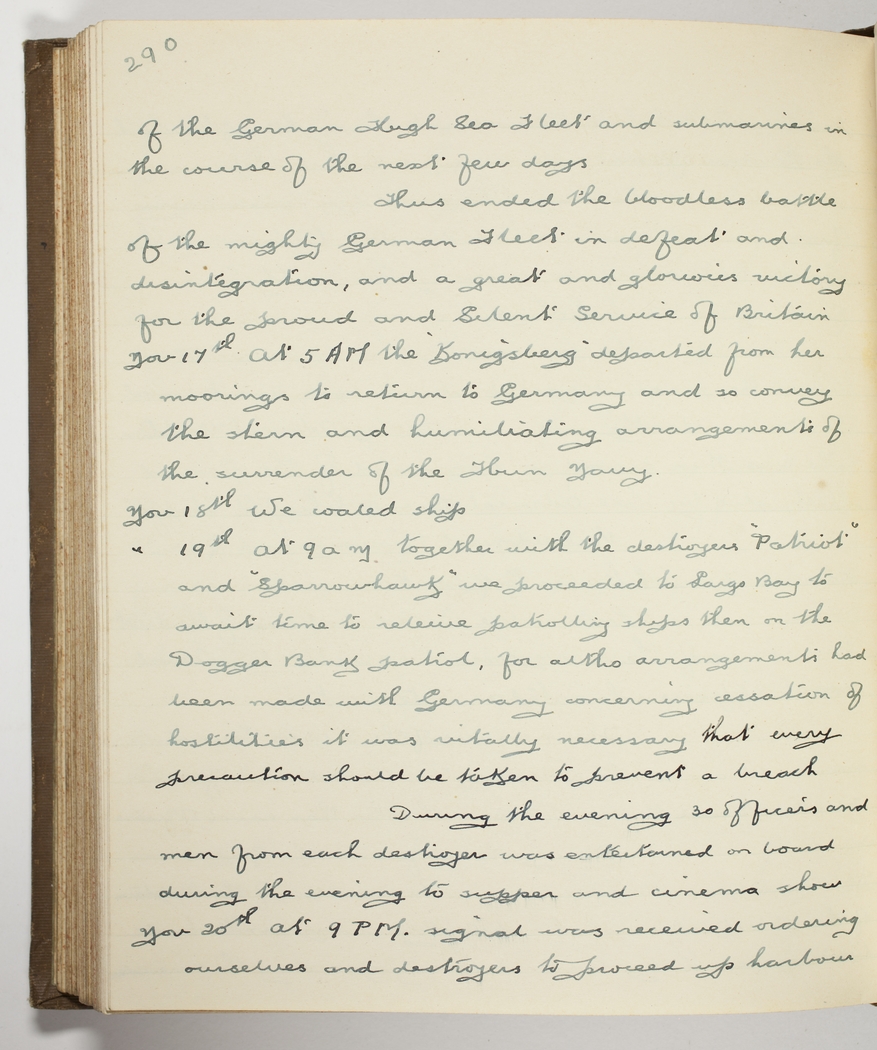 290
of the German High Sea Fleet and submarines in
the course of the next few days
Thus ended the bloodless battle
of the mighty German Fleet in defeat and.
disintegration, and a great and glorious victory
for the proud and Silent Service of Britain
Nov 17th At 5 AM the "Konigsberg" departed from her
moorings to return to Germany and so convey
the stern and humiliating arrangements of
the surrender of the Hun Navy.
Nov 18th We coaled ship
" 19th At 9 a m. together with the destroyers "Patriot"
and "Sparrowhawk" we proceeded to Largs Bay to
await time to releive patrolling ships then on the
Dogger Bank patrol, for altho arrangements had
been made with Germany concerning cessation of
hostilities it was vitally necessary that every
precaution should be taken to prevent a breach
During the evening 30 officers and
men from each destroyer was entertained on board
during the evening to supper and cinema show
Nov 20th At 9 PM. signal was received ordering
ourselves and destroyers to proceed up harbour